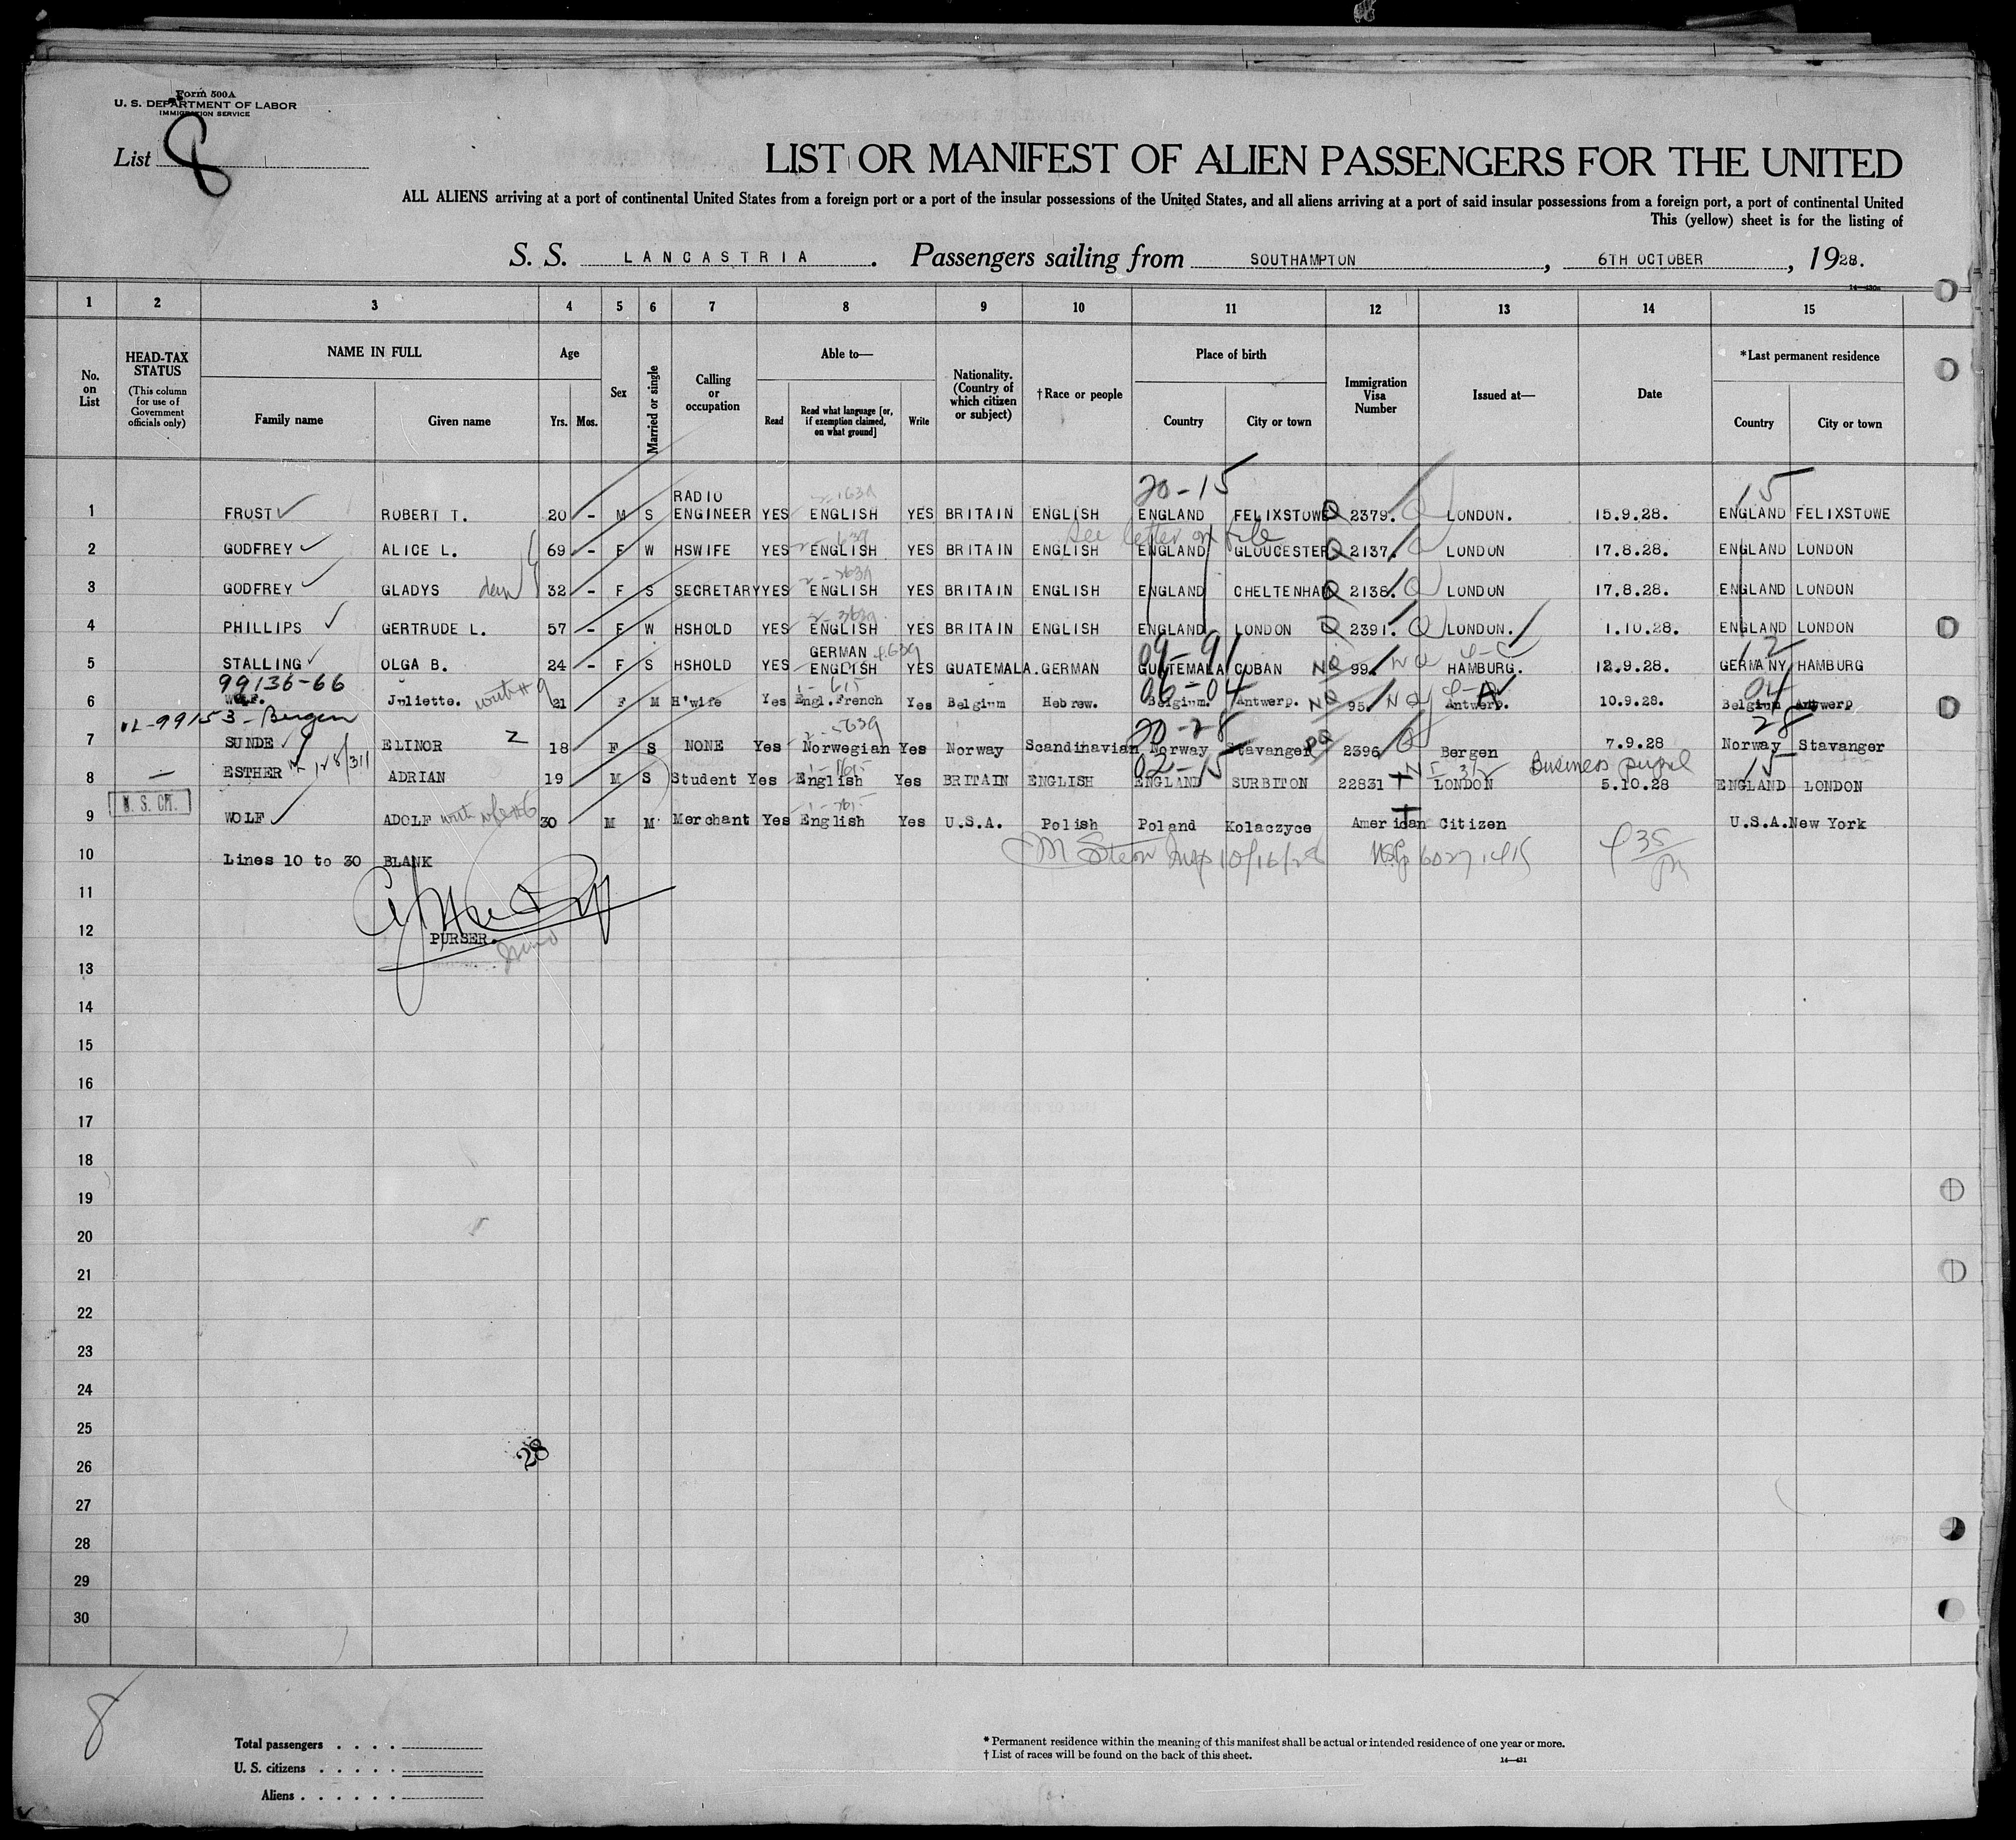 Form 500A
U. S. DEPARTMENT OF LABOR
IMMIGRATION SERVICE
List 8
LIST OR MANIFEST OF ALIEN PASSENGERS FOR THE UNITED
ALL ALIENS arriving at a port of continental United States from a foreign port or a port of the insular possessions of the United States, and all aliens arriving at a port of said insular possessions from a foreign port, a port of continental United
This (yellow) sheet is for the listing of
S. S. LANCASTRIA. Passengers sailing from SOUTHAMPTON, 6TH OCTOBER, 1928.
1 2 3 4 5 6 7 8 9 10 11 12 13 14 15
No. on List
HEAD-TAX STATUS (This column for use of Government officials only)
NAME IN FULL
Family name Given name
Age
Yrs. Mos.
Sex
Married or single
Calling or occupation
Able to—
Read Read what language [or, if exemption claimed, on what ground] Write
Nationality. (Country of which citizen or subject)
†Race or people
Place of birth
Country City or town
Immigration Visa Number
Issued at—
Date
*Last permanent residence
Country City or town
20-15 15
1 FROST ROBERT T. 20 - M S RADIO ENGINEER YES ENGLISH YES BRITAIN ENGLISH ENGLAND FELIXSTOWE Q 2379. Q LONDON. 15.9.28. ENGLAND FELIXSTOWE
See letter on file
2 GODFREY ALICE L. 69 - F W HSWIFE YES ENGLISH YES BRITAIN ENGLISH ENGLAND GLOUCESTER Q 2137. Q LONDON 17.8.28. ENGLAND LONDON
3 GODFREY GLADYS 32 - F S SECRETARY YES ENGLISH YES BRITAIN ENGLISH ENGLAND CHELTENHAM Q 2138. Q LONDON 17.8.28. ENGLAND LONDON
4 PHILLIPS GERTRUDE L. 57 - F W HSHOLD YES ENGLISH YES BRITAIN ENGLISH ENGLAND LONDON Q 2391. Q LONDON. 1.10.28. ENGLAND LONDON
09-91 12
5 STALLING OLGA B. 24 - F S HSHOLD YES GERMAN ENGLISH YES GUATEMALA. GERMAN GUATEMALA COBAN NQ 99. NQ HAMBURG. 12.9.28. GERMANY HAMBURG
99136-66 06-04 04
6 WOLF. Juliette. with #9 21 F M H'wife Yes Engl.French Yes Belgium Hebrew. Belgium. Antwerp. NQ 95. NQ Antwerp. 10.9.28. Belgium Antwerp
99153-Bergen 20-28 28
7 SUNDE ELINOR 2 18 F S NONE Yes Norwegian Yes Norway Scandinavian Norway Stavanger 2396 Q Bergen 7.9.28 Norway Stavanger
02-15 Business pupil 15
8 ESTHER ADRIAN 19 M S Student Yes English Yes BRITAIN ENGLISH ENGLAND SURBITON 22831 LONDON 5.10.28 ENGLAND LONDON
U. S. CIT.
9 WOLF ADOLF with wife #6 30 M M Merchant Yes English Yes U.S.A. Polish Poland Kolaczyce American Citizen U.S.A. New York
10 Lines 10 to 30 BLANK
10/16/28
11
12 PURSER.
13
14
15
16
17
18
19
20
21
22
23
24
25
28
26
27
28
29
30
8
Total passengers . . . .
U. S. citizens . . . . .
Aliens . . . . . .
* Permanent residence within the meaning of this manifest shall be actual or intended residence of one year or more.
† List of races will be found on the back of this sheet.
14—431